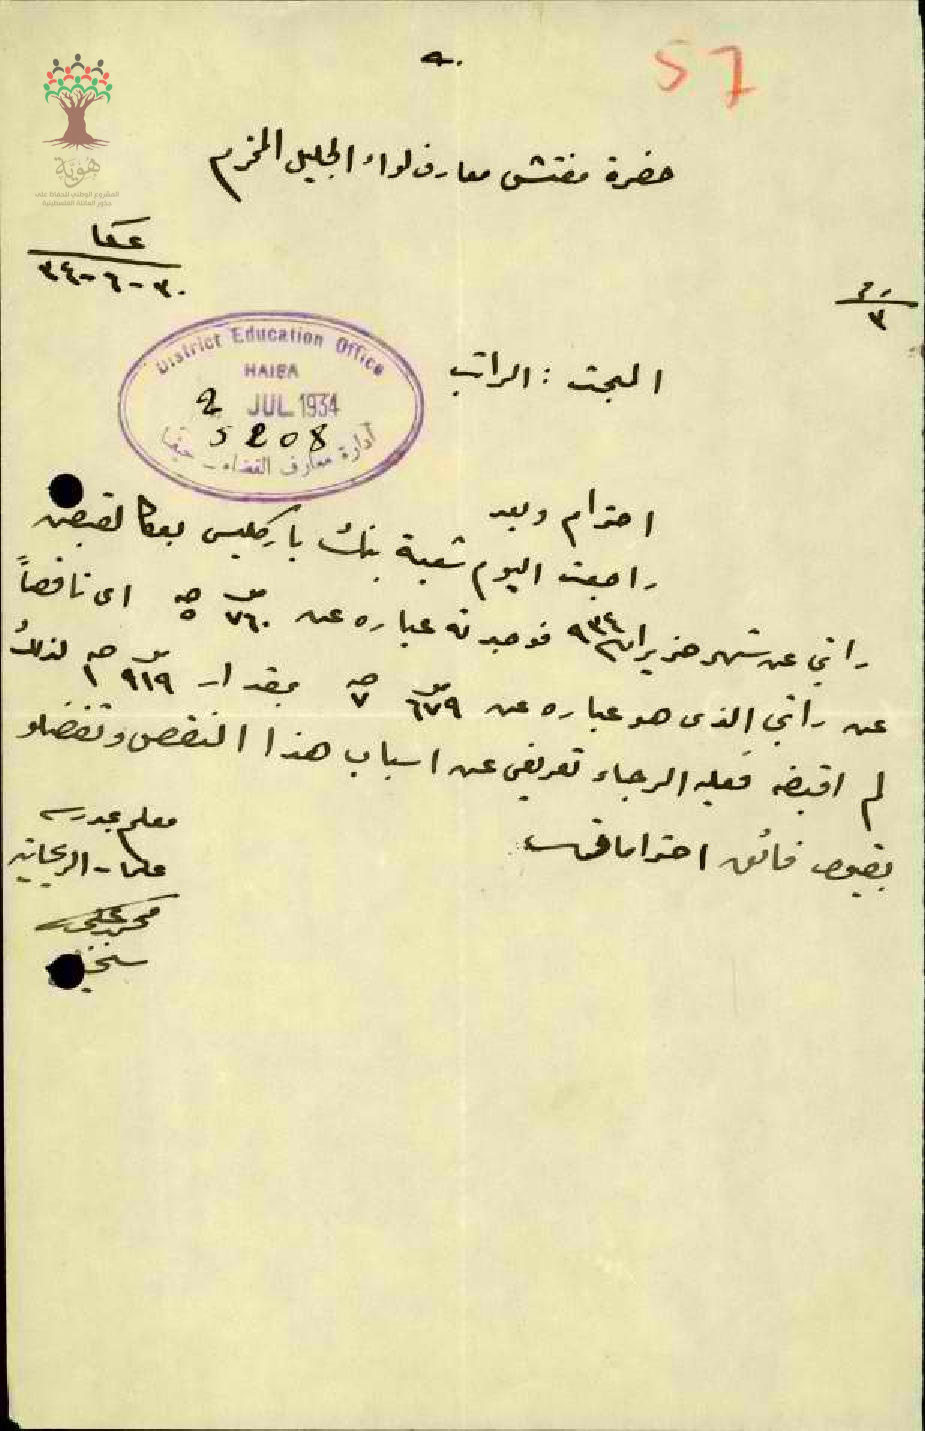 57
هوية
المشروع الوطني للحفاظ على
جذور العائلة الفلسطينية
حضرة مفتش معارف لواء الجليل المحترم
عكا
٣٠-٦-٣٤
رقم
٣
District Education Office
HAIFA
2 JUL 1934
5208
ادارة معارف القضاء - حيفا
المبحث : الراتب
احترام وبعد
راجعت اليوم شعبة بنك باركليس بعكا لقبض
راتبي عن شهر حزيران ٩٣٤ فوجدته عباره عن ٧٦٠ ٥ اى ناقصاً
عن راتبي الذى هو عباره عن ٦٧٩ ٧ بمقدار ٩١٩ ١ لذلك
لم اقبضه فعليه الرجاء تعريفي عن اسباب هذا النقص وتفضلو
بقبول فائق احتراماتي
معلم مدرسة
علما - الريحانيه
محمد علي